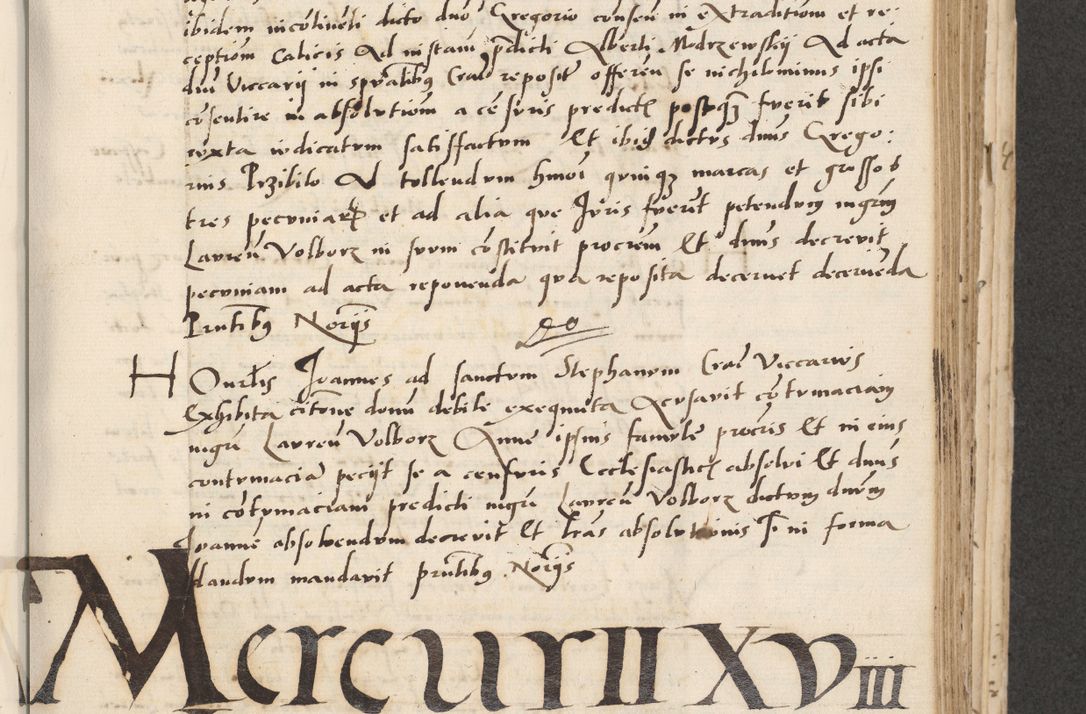 ibidem in cõtinẽti dicto dnõ Gregorio consen in extraditiom et re
ceptiom Calicis Ad instam p̃dicti Alberti Modrzewskij Ad acta
dni Viccarij in spũalibus Crac reposite offeren se nichilominus ipsi
cõsentire in absolutiom a cẽsuris predictis postqȝ fuerit sibi
iuxta iudicatum satisfactum Et ibid dictus dnus Grego:
rius Przibilo Ad tollendum hmoi quinqȝ marcas et grossos
tres pecuniarum et ad alia que Juris fuerĩt petendum mgrm
Lauren Volborz in suum cõstituit procrem Et dnus decrevit
pecuniam ad acta reponenda qua reposita decernet decernẽda
Pñtibus Noriis
Hourlis Joannes ad sanctum Stephanum Crac Viccarius
Exhibita citõne domi debite exequuta Acusavit cõtumaciam
mgri Lauren Volborz Anne ipsius famule procris Et in eius
contumaciã pecijt se a censuris Ecclesiasticis absolvi Et dnus
in cõtumaciam predicti mgri Lauren Volborz dictum dnum
Joannẽ absolvendum decrevit Et lras absolutionis sĩ in forma
dandum mandavit pñtibus Noriis
Mercurii XVIII